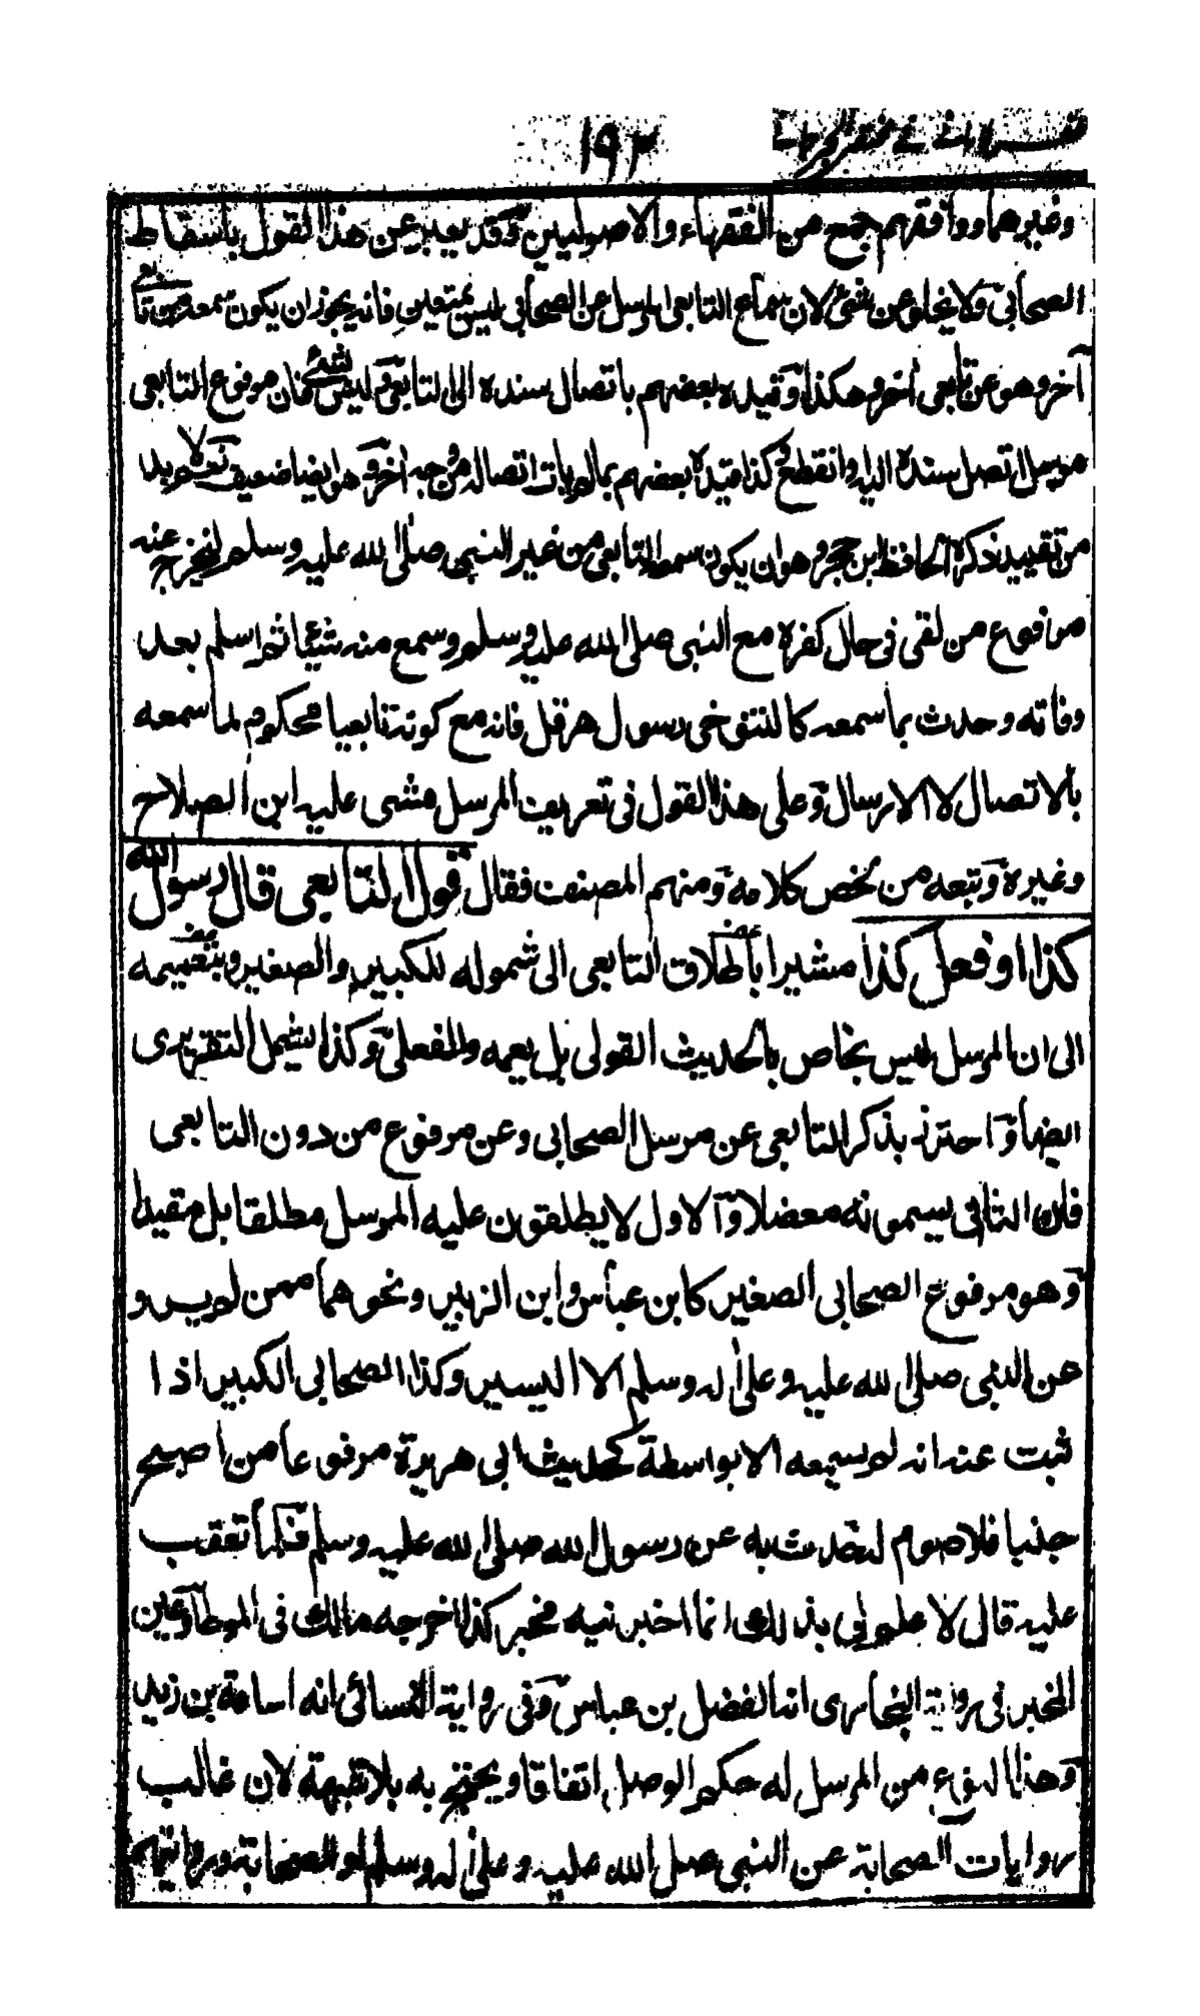 ظفر الاماني في مختصر الجرجاني ١٩٢
وغيرهما ووافقهم جمع من الفقهاء والاصوليين وقد يعبر عن هذا القول باسقاط
الصحابي ولا يخلو عن شئ لان سماع التابعي المرسل عن الصحابي ليس بمتعين فانه يجوز ان يكون سمعه من تابعي
آخر وهو عن تابعي آخر وهكذا وقيده بعضهم باتصال سنده الى التابعي وليس بشئ فان مرفوع التابعي
مرسل اتصل سنده اليه او انقطع وكذا قيده بعضهم بما لم يات اتصاله من وجه آخر وهو ايضا ضعيف نعم لا بد
من تقييد ذكره الحافظ ابن حجر وهو ان يكون سمعه التابعي من غير النبي صلى الله عليه وسلم ليخرج عنه
مرفوع من لقى في حال كفره مع النبي صلى الله عليه وسلم وسمع منه شيئا ثم اسلم بعد
وفاته وحدث بما سمعه كالتنوخى رسول هرقل فانه مع كونه تابعيا محكوم لما سمعه
بالاتصال لا الارسال وعلى هذا القول في تعريف المرسل مشى عليه ابن الصلاح
وغيره وتبعه من لخص كلامه ومنهم المصنف فقال قول التابعي قال رسول الله
كذا او فعل كذا مشيرا باطلاق التابعي الى شموله للكبير والصغير وبتعميمه
الى ان المرسل ليس بخاص بالحديث القولى بل يعمه والفعلى وكذا يشمل التقريرى
ايضا واحترز بذكر التابعي عن مرسل الصحابى وعن مرفوع من دون التابعى
فان الثانى يسمونه معضلا والاول لا يطلقون عليه المرسل مطلقا بل مقيدا
وهو مرفوع الصحابى الصغير كابن عباس وابن الزبير ونحوهما ممن لم يرو
عن النبى صلى الله عليه وعلى آله وسلم الا اليسير وكذا الصحابى الكبير اذا
ثبت عنه انه لم يسمعه الا بواسطة كحديث ابى هريرة مرفوعا من اصبح
جنبا فلا صوم له حدث به عن رسول الله صلى الله عليه وسلم فلما تعقب
عليه قال لا علم لى بذلك انما اخبرنيه مخبر كذا اخرجه مالك فى الموطأ وعين
المخبر فى رواية البخارى انه الفضل بن عباس وفى رواية النسائى انه اسامة بن زيد
وهذا النوع من المرسل له حكم الوصل اتفاقا ويحتج به بلا شبهة لان غالب
روايات الصحابة عن النبى صلى الله عليه وعلى آله وسلم او الصحابة وروايتهم